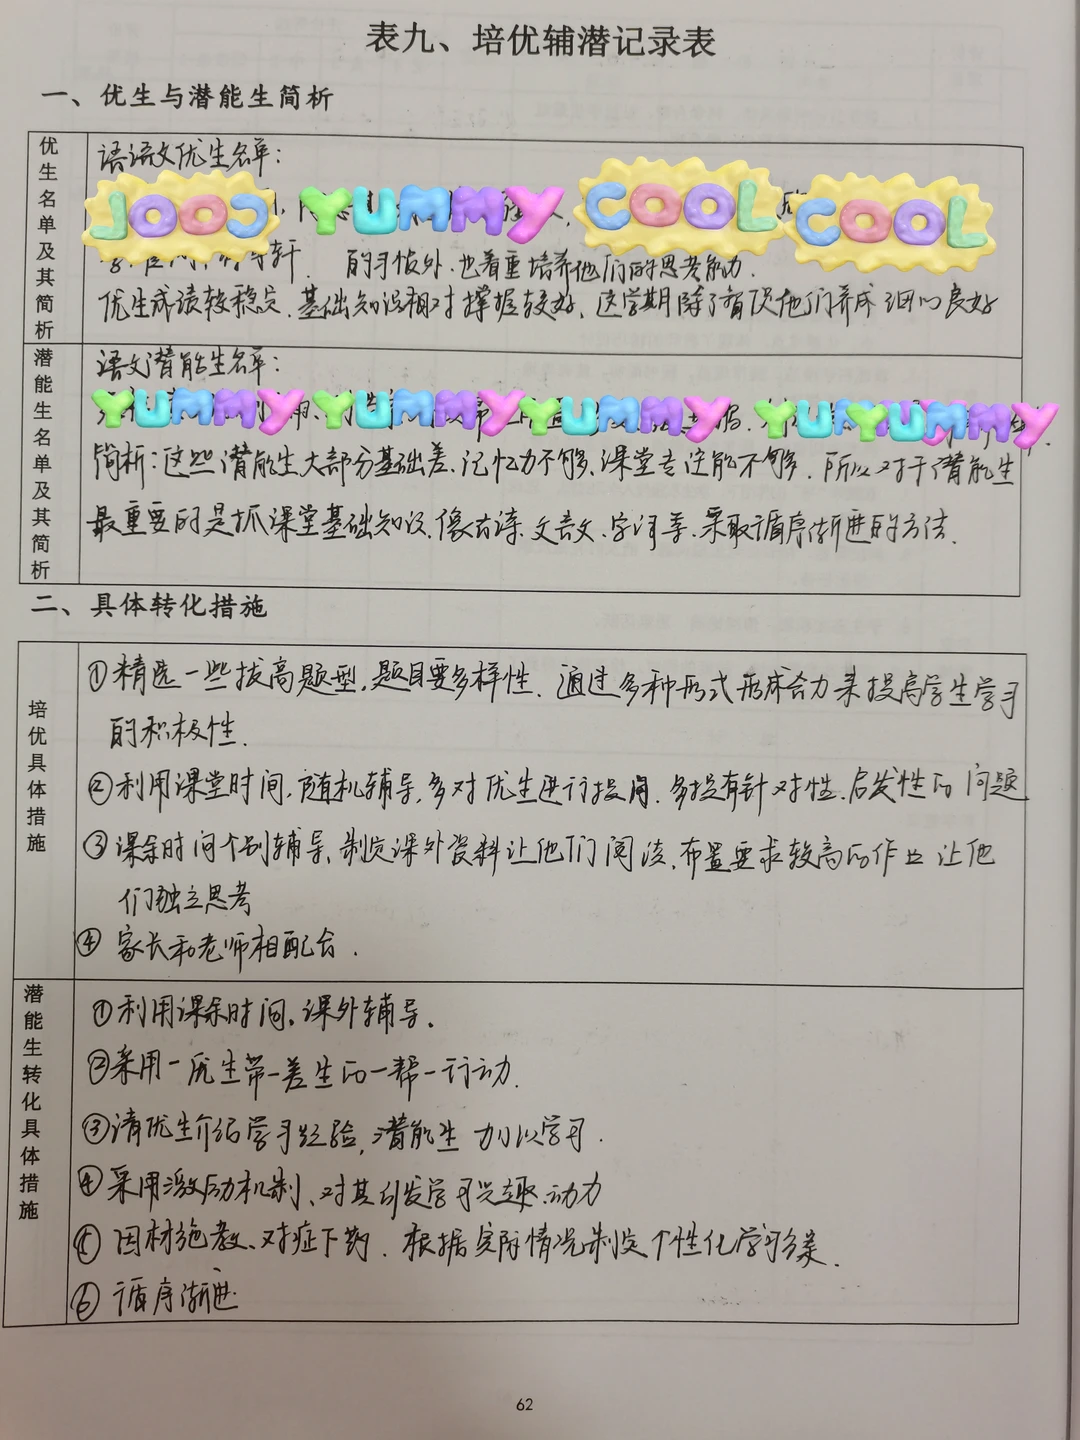 表九、培优辅潜记录表
一、优生与潜能生简析
优生名单及其简析
语语文优生名单：
COOL YUMMY COOL COOL
的习惯外.也着重培养他们的思考能力.
优生成绩较稳定.基础知识相对掌握较好.这学期除了督促他们养成细心良好
潜能生名单及其简析
语文潜能生名单：
YUMMY YUMMY YUMMY YUYUMMY
简析：这些潜能生大部分基础差、记忆力不够、课堂专注能不够.所以对于潜能生
最重要的是抓课堂基础知识.像古诗.文言文.字词等.采取循序渐进的方法.
二、具体转化措施
培优具体措施
①精选一些拔高题型.题目要多样性.通过多种形式形成合力来提高学生学习
的积极性.
②利用课堂时间.随机辅导.多对优生进行提问.多提有针对性.启发性的问题
③课余时间个别辅导.制定课外资料让他们阅读.布置要求较高的作业让他
们独立思考
④家长和老师相配合.
潜能生转化具体措施
①利用课余时间.课外辅导.
②采用一优生带一差生的一帮一行动.
③请优生介绍学习经验,潜能生加以学习.
④采用激励机制、对其引发学习兴趣.动力
⑤因材施教、对症下药.根据实际情况制定个性化学习方案.
⑥循序渐进
62